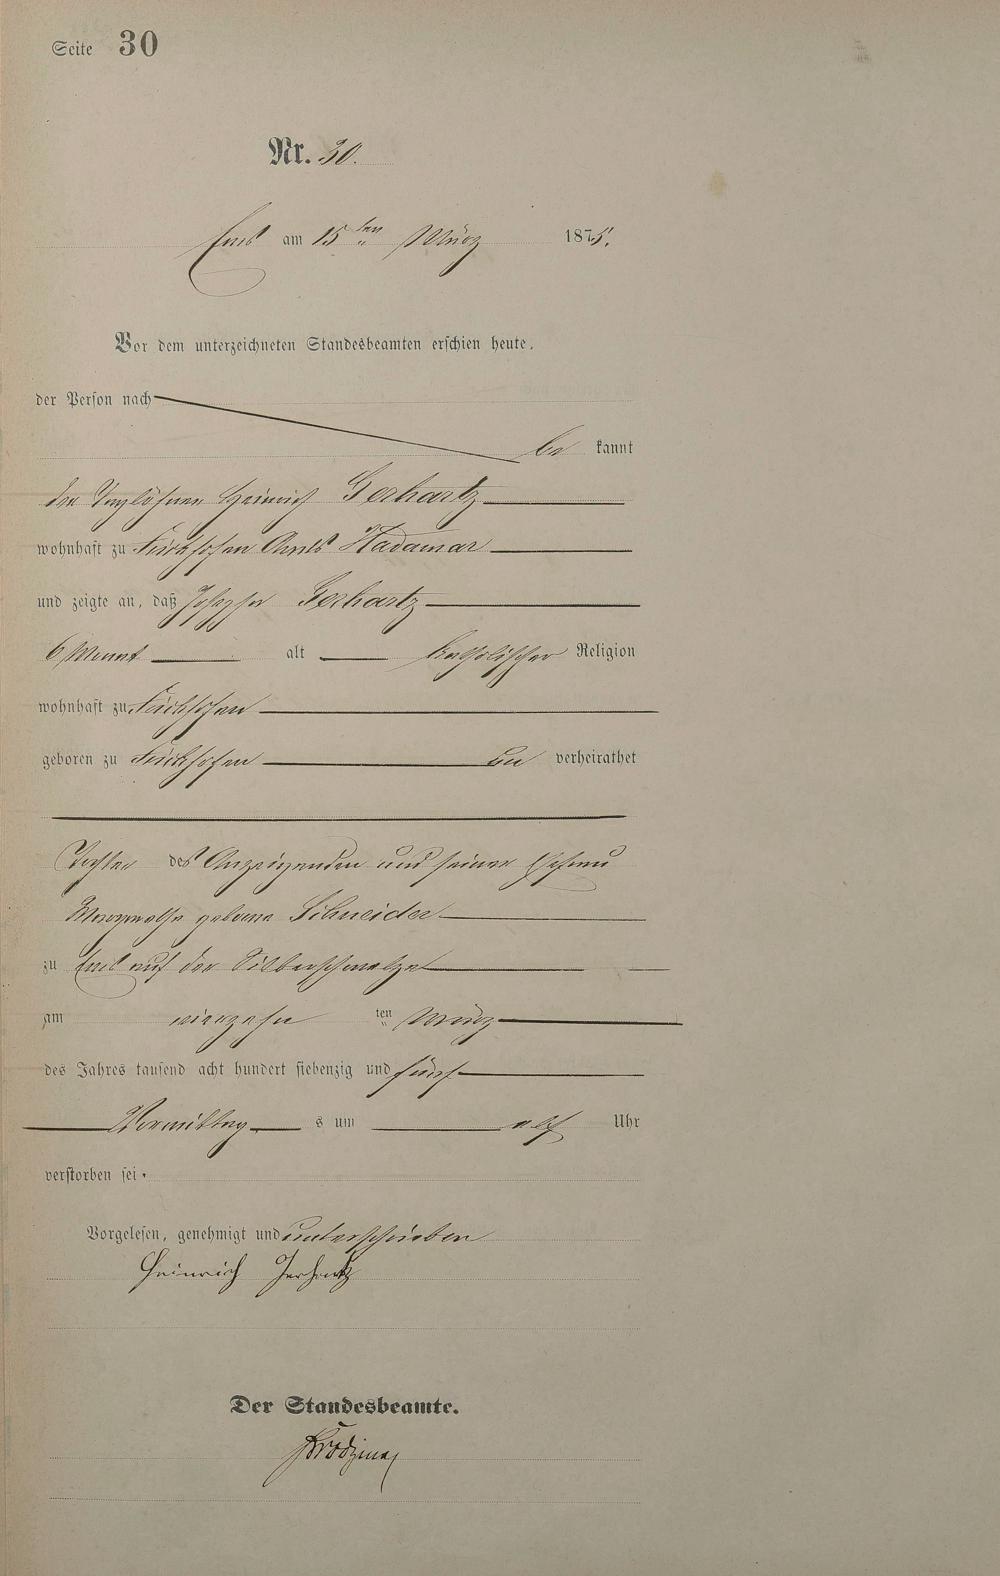 Seite 30
Nr. 30.
Ems am 15 ten März 1875.
Vor dem unterzeichneten Standesbeamten erschien heute,
der Person nach
be kannt
der Taglöhner Heinrich Gerhartz
wohnhaft zu Faulbach Amts Hadamar
und zeigte an, daß Josepha Gerhartz
6 Monat alt katholischer Religion
wohnhaft zu
geboren zu un verheirathet
Tochter des Anzeigenden und seiner Ehefrau
Margarethe geborne Schneider
zu Ems auf der Silberschmelze
am vierzehn ten März
des Jahres tausend acht hundert siebenzig und fünf
Vormittag s um elf Uhr
verstorben sei.
Vorgelesen, genehmigt und unterschrieben
Heinrich Gerhartz
Der Standesbeamte.